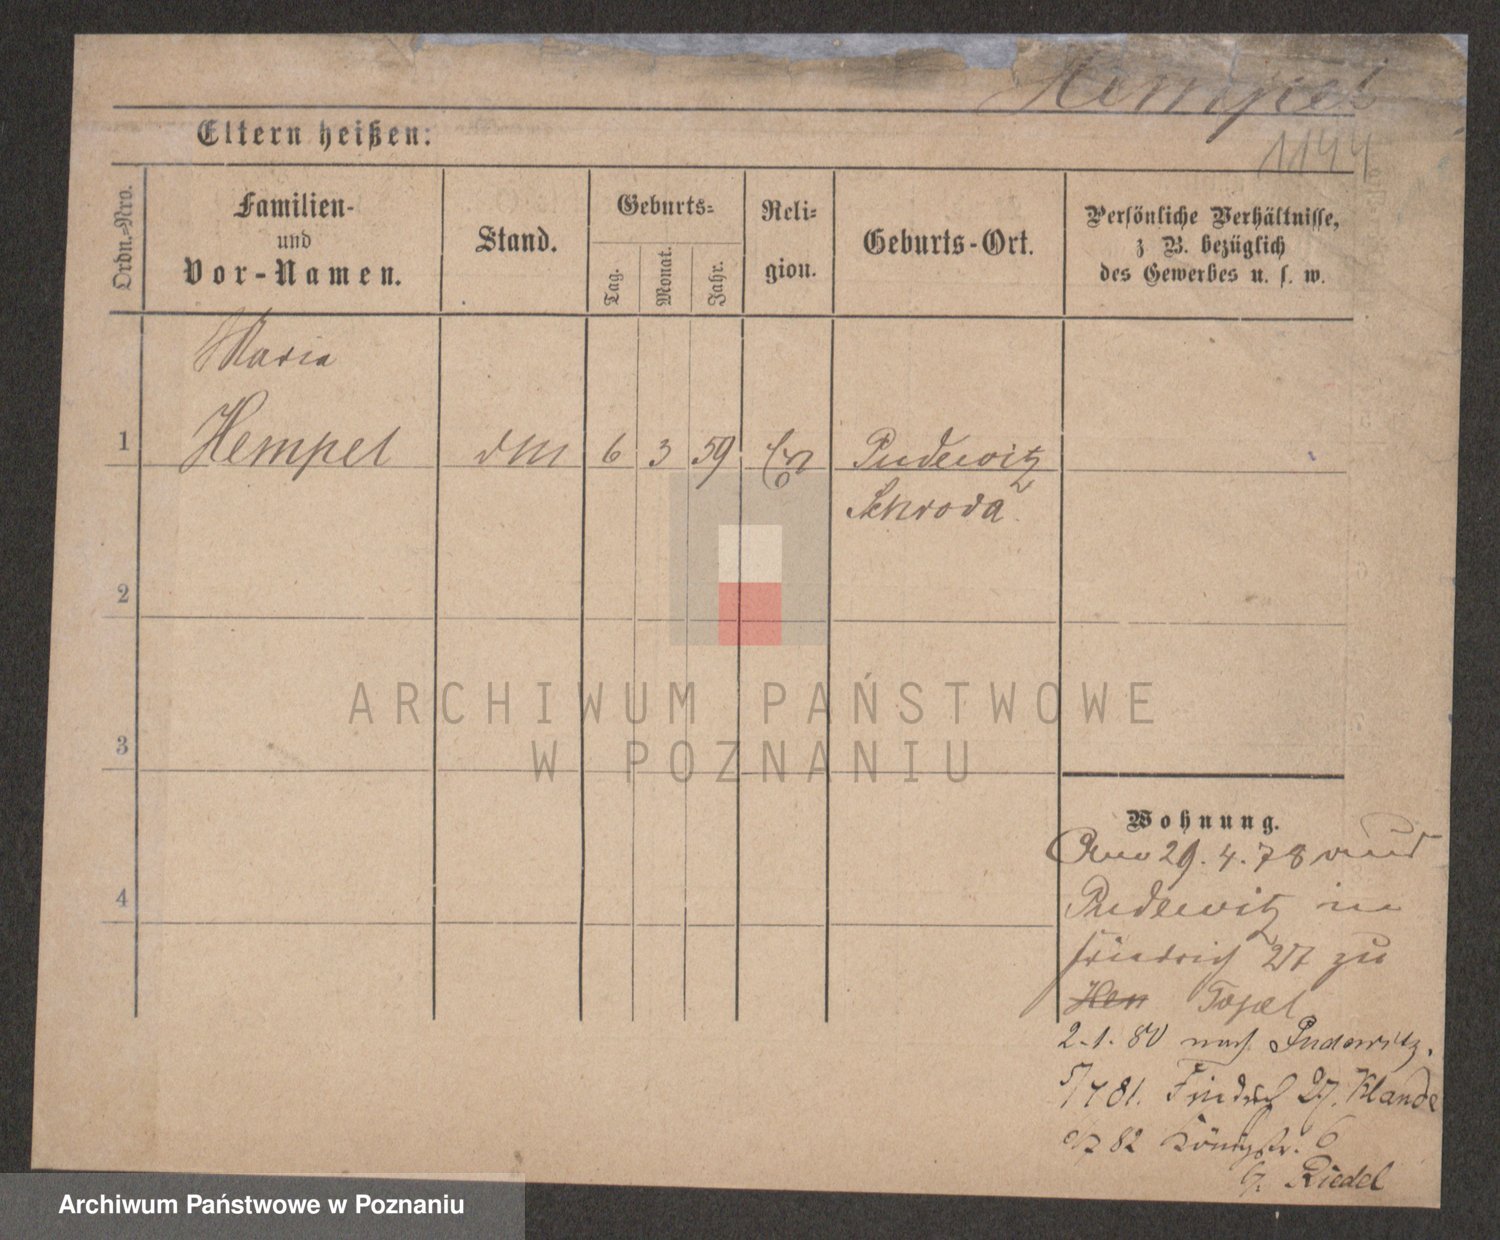 Hempel
1144
Eltern heißen:
Ordn.-Nro.
Familien-
und
Vor-Namen.
Stand.
Geburts-
Tag.
Monat.
Jahr.
Reli-
gion.
Geburts-Ort.
Persönliche Verhältnisse,
z B. bezüglich
des Gewerbes u. s. w.
Maria
1 Hempel 6 3 59 Pudewitz
Schroda
2
3
4
ARCHIWUM PAŃSTWOWE
W POZNANIU
Wohnung.
29.4.78
Pudewitz in
Friedrich 27 zu
Hen
2.1.80 nach Pudewitz.
81. Friedrich 27. Klande
82 Königstr. 6
b. Riedel
Archiwum Państwowe w Poznaniu